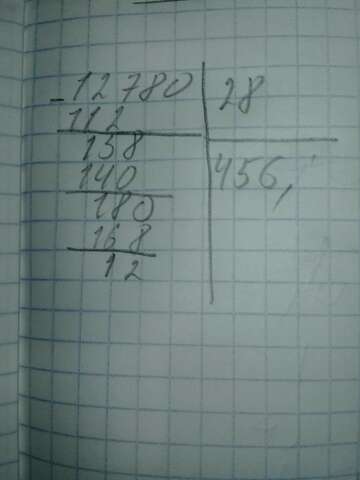 - 12780 28
112 456,
158
140
180
168
12